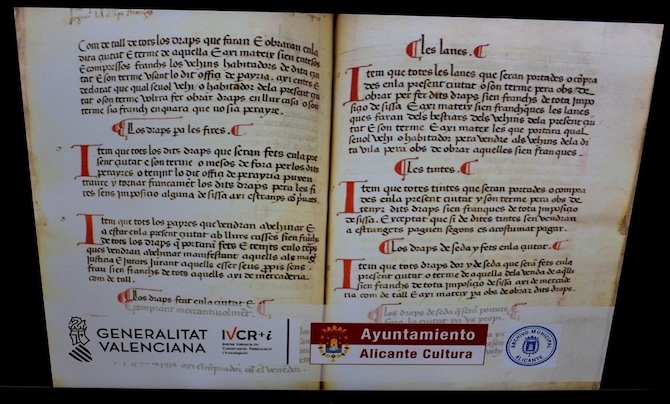 Com de tall de tots los draps que faran E obraran en la
dita ciutat E terme de aquella E axi mateix sien entesos
E compressos franchs los vehins habitadors de dita ciu
tat E son terme usant lo dit offici de payria. axi entes E
declarat que qual sevol vehi o habitador dela present ciu
tat o son terme volrra fer obrar draps en llur casa o son
terme sia franch enquara que no sia perayre.
Los draps pa les fires.
Item que tots los dits draps que seran fets en la pre
sent ciutat e son terme o mesos de fora per los dits
perayres o tenint lo dit offici de perayria puxen
traure y tornar francament los dits draps pera les fi
res sens imposicio alguna de sissa axi estranys com
Item que tots los payres que vendran a vehinar E
a estar en la present ciutat ab llurs casses sien franchs
de tots los draps que portaran fets E tenyits en lo temps
ques vendran a vehinar manifestant aquells als mag
Justicia E Jurats Jurant aquells esser seus propis sens
frau sien franchs de tots aquells axi de mercaderia
com de tall.
Los draps fent en la ciutat E
comprant mercantivolment.
les lanes.
Item que totes les lanes que seran portades o compra
des en la present ciutat o son terme pera obs de
obrar per fer dits draps sien franchs de tota impo
sicio de sissa E axi mateix sien franchques les lanes
ques faran dels bestiars dels vehins dela present ciu
tat E son terme E axi mateix les que portara qual
sevol vehi o habitador pera vendre als vehins dela di
ta vila pera obs de obrar aquelles sien franques.
Les tintes.
Item que totes tintes que seran portades o compra
des en la present ciutat y son terme pera obs de
tenyr dits draps sien franques de tota imposicio
de sissa. E exceptat que si de dites tintes sen vendran
a estrangers paguen segons es acostumat pagar.
Los draps de seda y fets en la ciutat.
Item que tots draps d or y de seda que seran fets en la
present ciutat o terme de aquella dela venda de aqlls
sien franchs de tota imposicio de sissa axi de mercade
ria com de tall E axi mateix pa obs de obrar dits draps.
Los draps de seda q sera portats
GENERALITAT
VALENCIANA
IVCR+i
Ayuntamiento
Alicante Cultura
ARCHIVO MUNICIPAL
ALICANTE